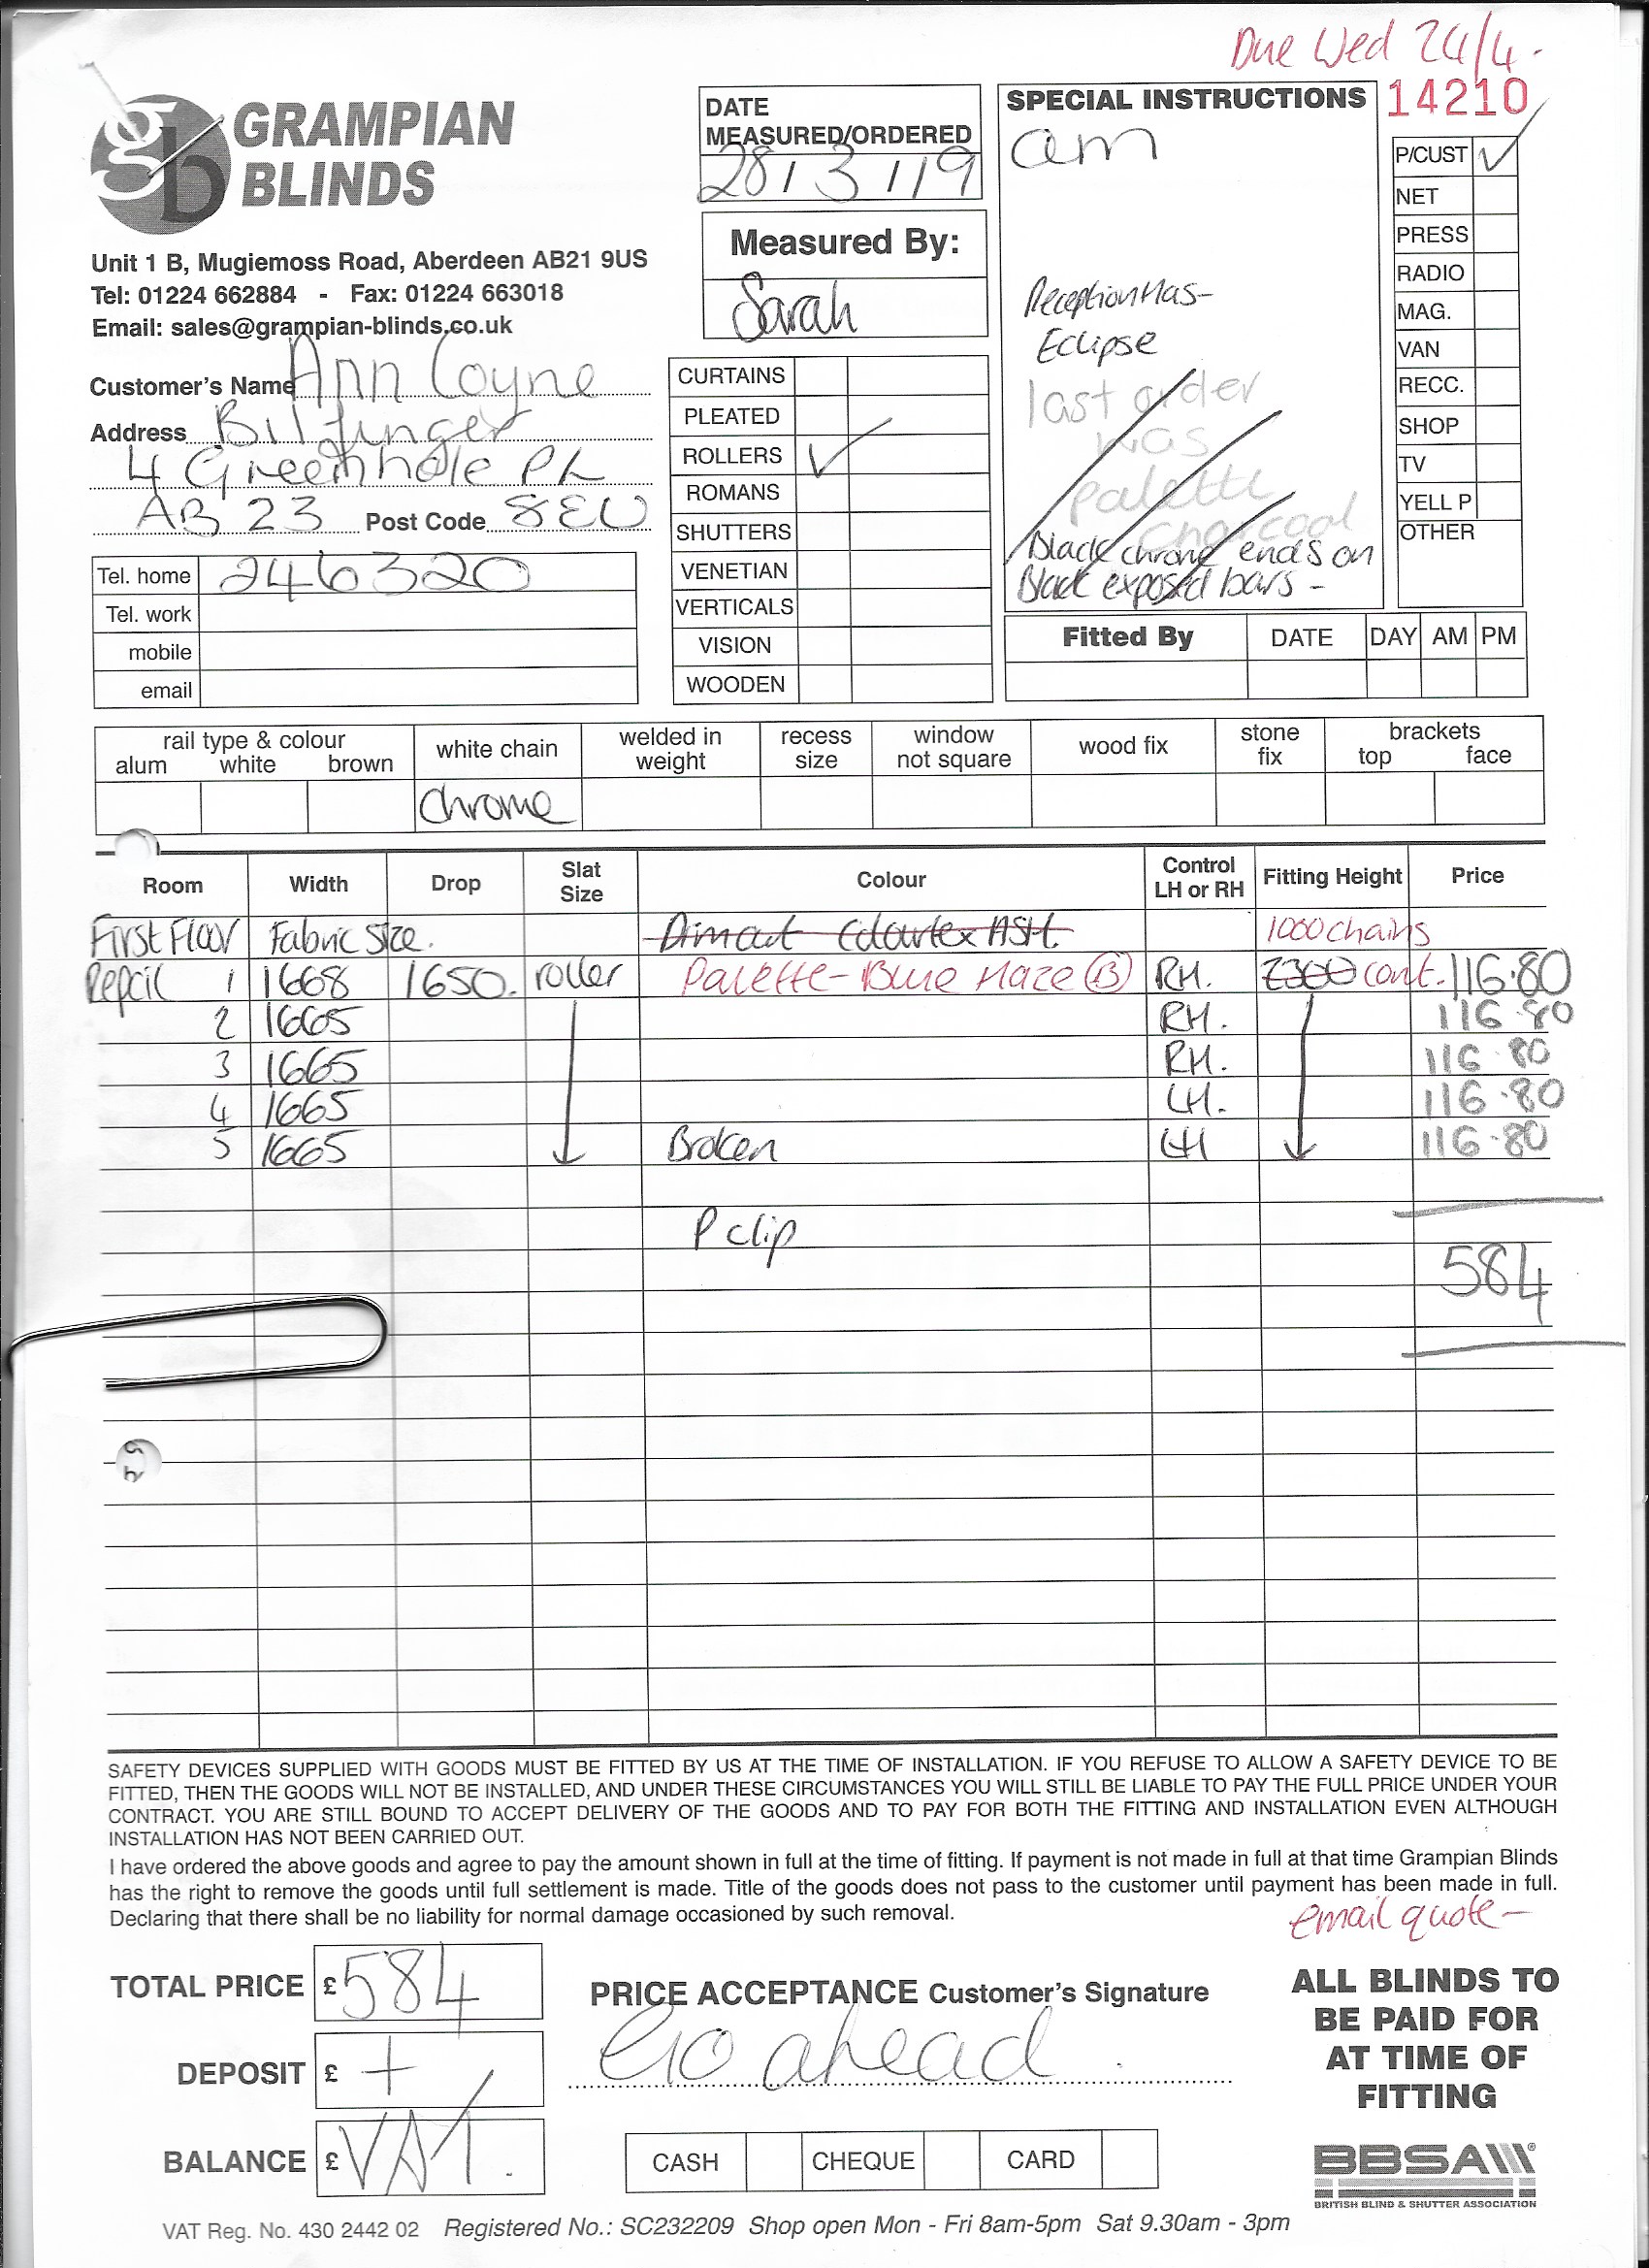 Due Wed 24/4.
14210
GRAMPIAN
BLINDS
Unit 1 B, Mugiemoss Road, Aberdeen AB21 9US
Tel: 01224 662884 - Fax: 01224 663018
Email: sales@grampian-blinds.co.uk
Customer's Name Ann Coyne
Address Bilfinger
4 Greenhole PL
AB 23 Post Code 8EU
Tel. home 246320
Tel. work
mobile
email
DATE
MEASURED/ORDERED
28/3/19
Measured By:
Sarah
CURTAINS
PLEATED
ROLLERS ✓
ROMANS
SHUTTERS
VENETIAN
VERTICALS
VISION
WOODEN
SPECIAL INSTRUCTIONS
am
Reception Has-
Eclipse
last order
was
palette
charcoal
Black chrome ends on
Black exposed bars -
P/CUST ✓
NET
PRESS
RADIO
MAG.
VAN
RECC.
SHOP
TV
YELL P
OTHER
Fitted By DATE DAY AM PM
rail type & colour
alum white brown
white chain
welded in weight
recess size
window not square
wood fix
stone fix
brackets
top face
Chrome
Room Width Drop Slat Size Colour Control LH or RH Fitting Height Price
First Floor Fabric Size. 1000 chains
1 1668 1650. roller Palette - Blue Haze (B) RH. 2300 cont. 116.80
2 1665 RH. 116.80
3 1665 RH. 116.80
4 1665 LH. 116.80
5 1665 Broken LH 116.80
P clip
584
SAFETY DEVICES SUPPLIED WITH GOODS MUST BE FITTED BY US AT THE TIME OF INSTALLATION. IF YOU REFUSE TO ALLOW A SAFETY DEVICE TO BE
FITTED, THEN THE GOODS WILL NOT BE INSTALLED, AND UNDER THESE CIRCUMSTANCES YOU WILL STILL BE LIABLE TO PAY THE FULL PRICE UNDER YOUR
CONTRACT. YOU ARE STILL BOUND TO ACCEPT DELIVERY OF THE GOODS AND TO PAY FOR BOTH THE FITTING AND INSTALLATION EVEN ALTHOUGH
INSTALLATION HAS NOT BEEN CARRIED OUT.
I have ordered the above goods and agree to pay the amount shown in full at the time of fitting. If payment is not made in full at that time Grampian Blinds
has the right to remove the goods until full settlement is made. Title of the goods does not pass to the customer until payment has been made in full.
Declaring that there shall be no liability for normal damage occasioned by such removal.
email quote -
TOTAL PRICE £ 584
DEPOSIT £ +
BALANCE £ VAT.
PRICE ACCEPTANCE Customer's Signature
Go ahead
CASH CHEQUE CARD
ALL BLINDS TO
BE PAID FOR
AT TIME OF
FITTING
BBSA
BRITISH BLIND & SHUTTER ASSOCIATION
VAT Reg. No. 430 2442 02 Registered No.: SC232209 Shop open Mon - Fri 8am-5pm Sat 9.30am - 3pm